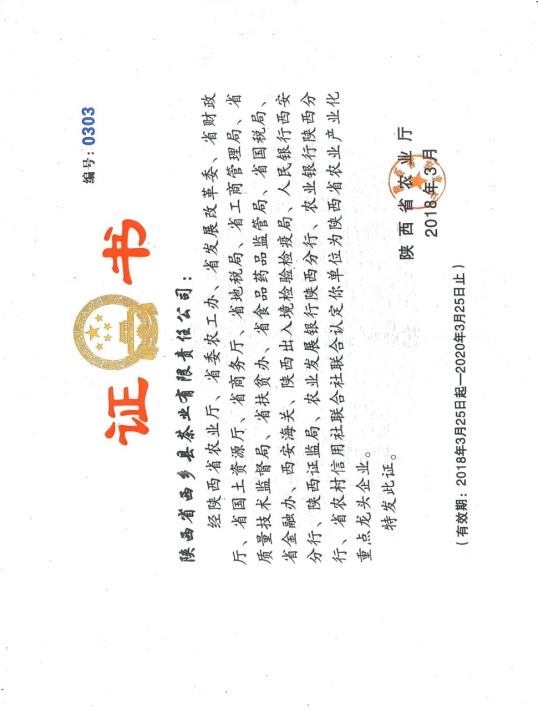 编号：0303
证书
陕西省西乡县茶业有限责任公司：
经陕西省农业厅、省委农工办、省发展改革委、省财政
厅、省国土资源厅、省商务厅、省地税局、省工商管理局、省
质量技术监督局、省扶贫办、省食品药品监管局、省国税局、
省金融办、西安海关、陕西出入境检验检疫局、人民银行西安
分行、陕西证监局、农业发展银行陕西分行、农业银行陕西分
行、省农村信用社联合社联合认定你单位为陕西省农业产业化
重点龙头企业。
特发此证。
陕西省农业厅
2018年3月
（有效期：2018年3月25日起—2020年3月25日止）